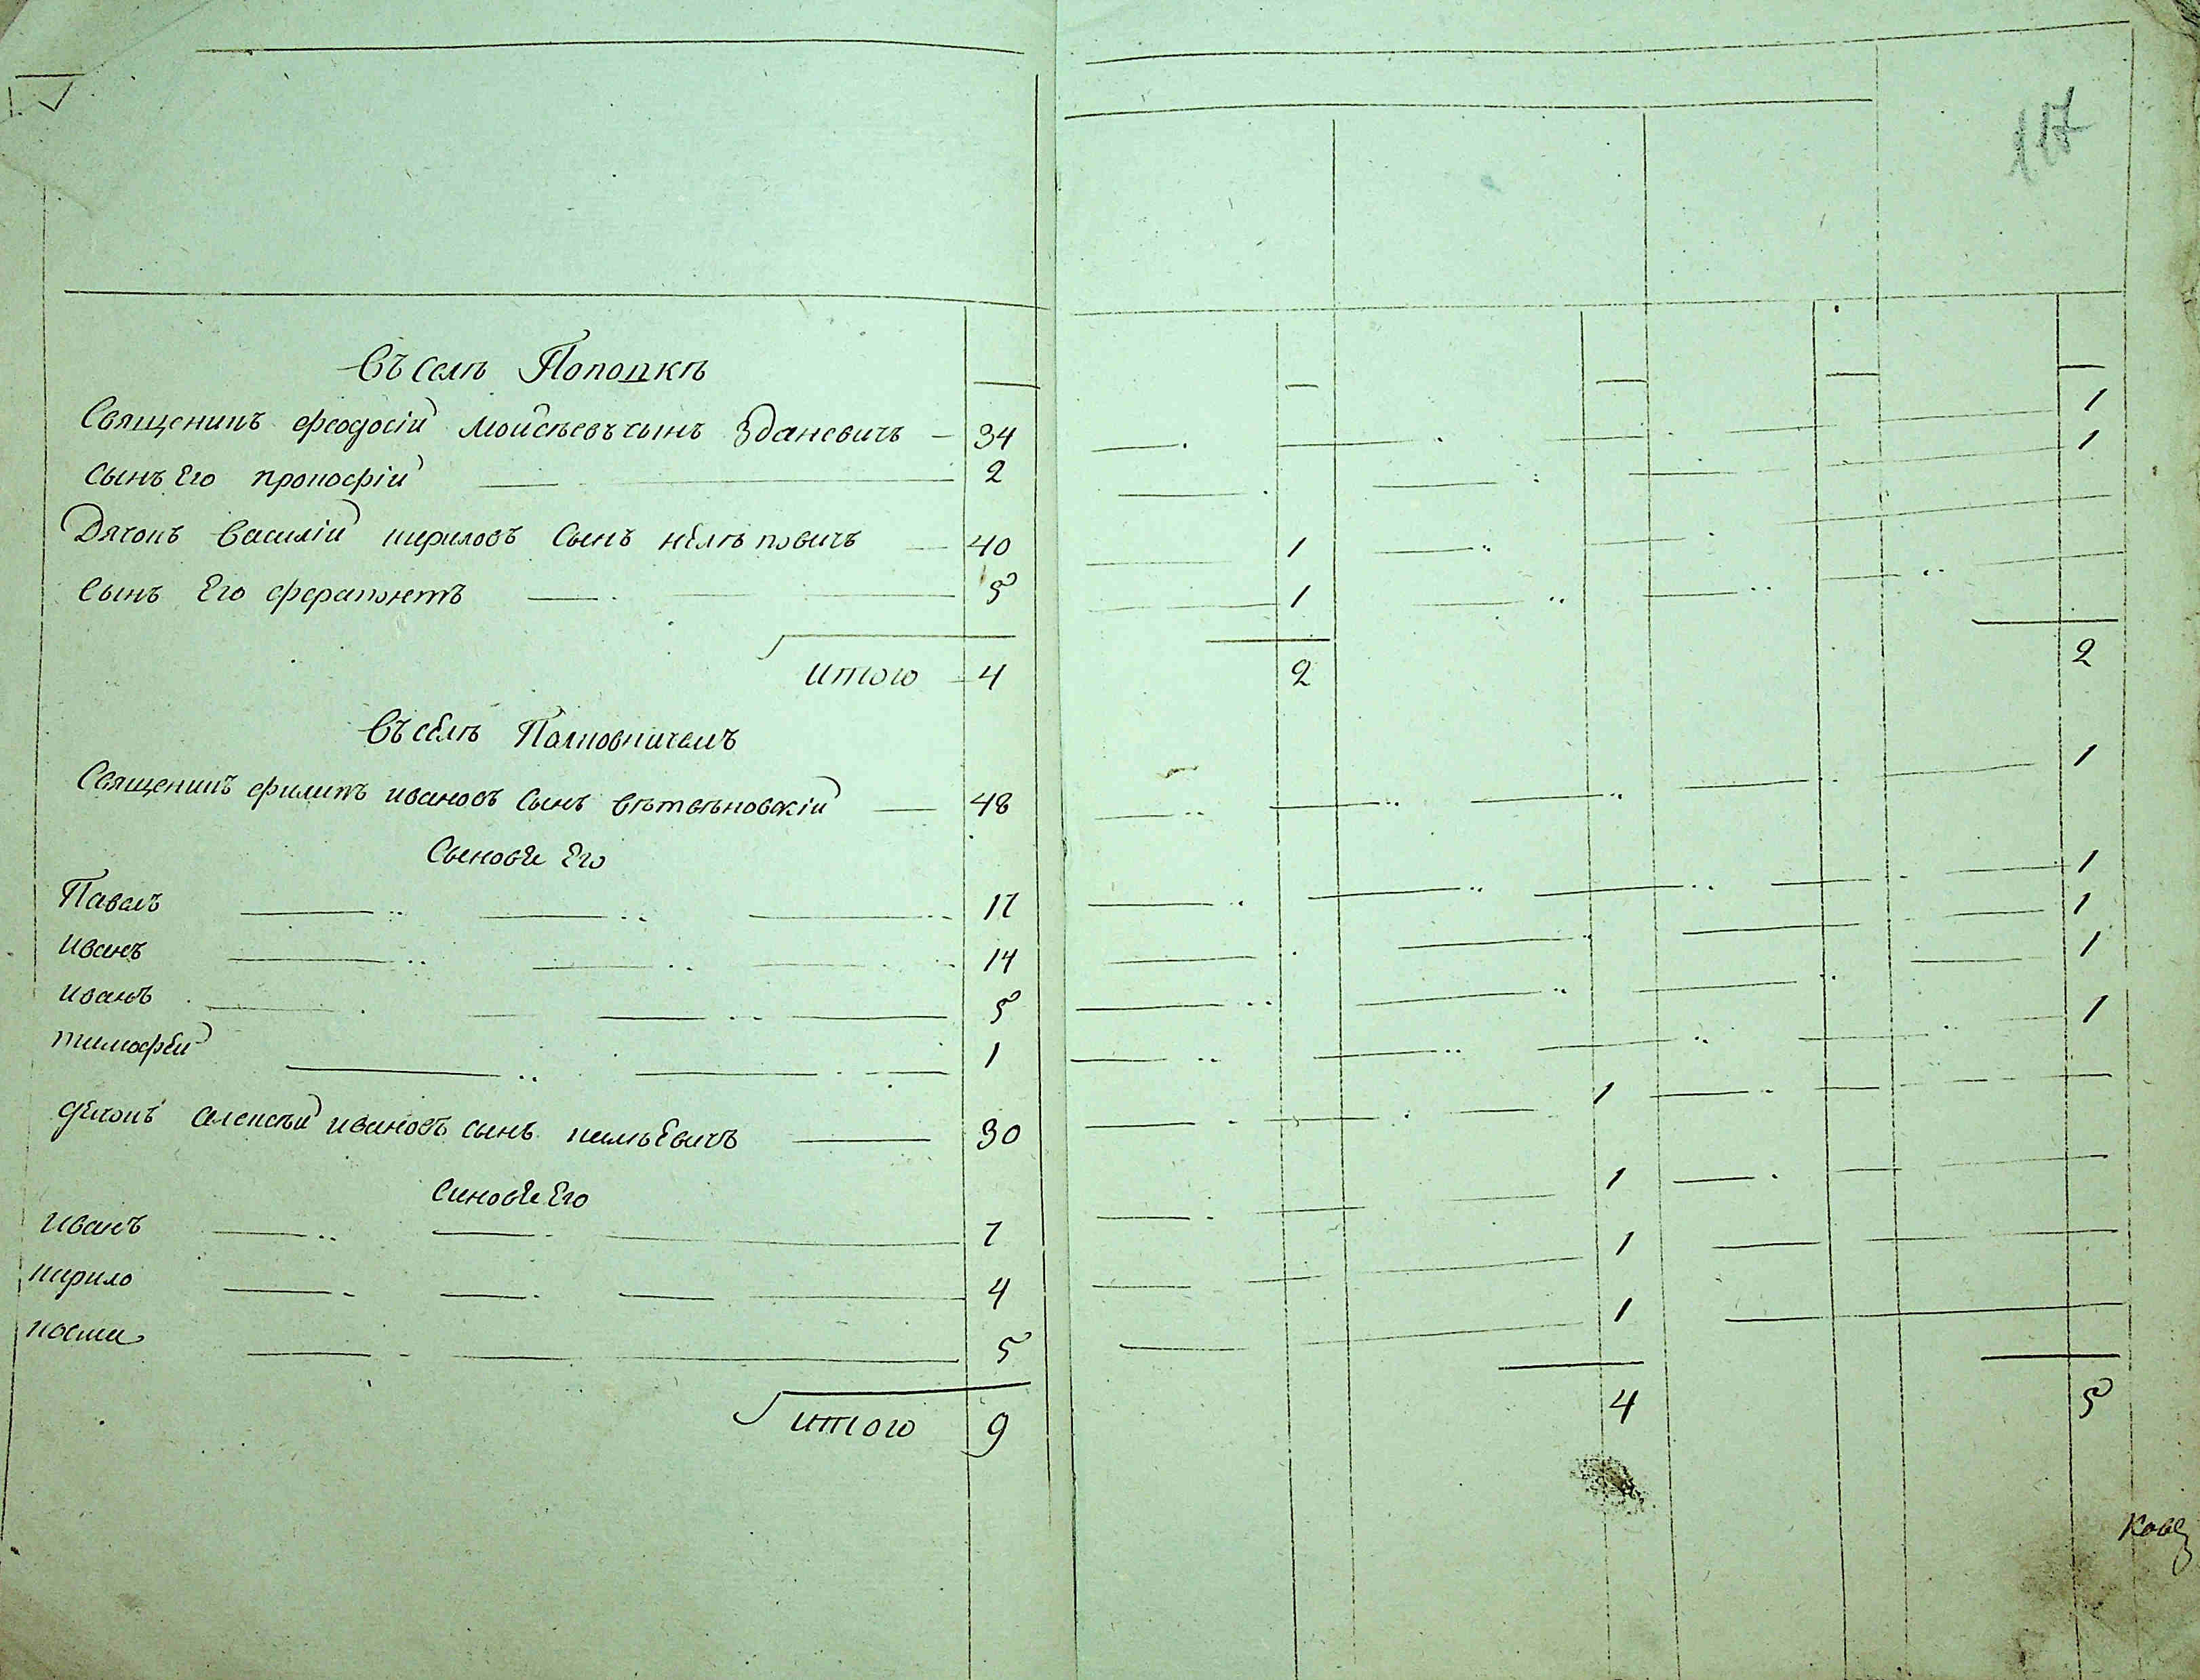 117
Въ селѣ Попопкѣ
Священикъ феодосій Моисѣевъ сынъ Зданевичъ — 34 1
Сынъ Его прокофій 2 1
Дячокъ Василій кириловъ Сынъ 40 1
Сынъ Его ферапонтъ 5 1
Итого 4 2 2
Въ селѣ
Священикъ филипъ ивановъ Сынъ 48 1
Сыновѣ Его
Павелъ 17 1
Иванъ 14 1
Иванъ 5 1
тимофѣй 1 1
дячокъ алексѣй ивановъ сынъ 30 1
Синовѣ Его
Иванъ 7 1
кирило 4 1
косма 5 1
Итого 9 4 5